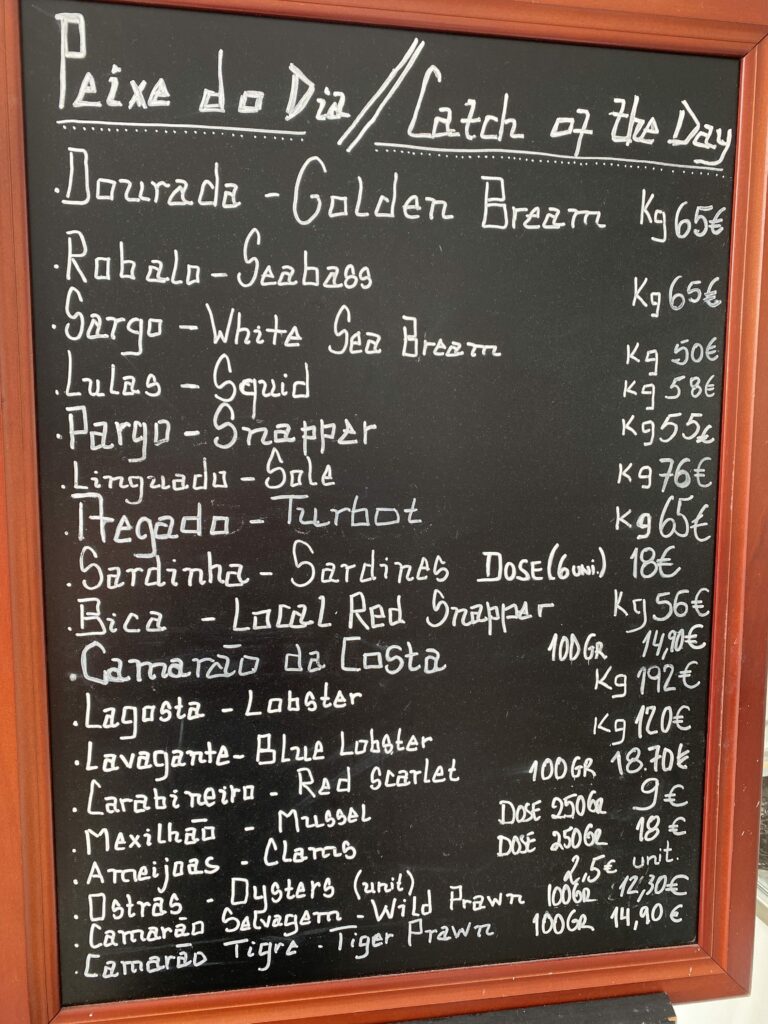 Peixe do Dia // Catch of the Day
. Dourada - Golden Bream Kg 65€
. Robalo - Seabass Kg 65€
. Sargo - White Sea Bream Kg 50€
. Lulas - Squid Kg 58€
. Pargo - Snapper Kg 55€
. Linguado - Sole Kg 76€
. Pregado - Turbot Kg 65€
. Sardinha - Sardines DOSE (6 UNI.) 18€
. Bica - Local Red Snapper Kg 56€
. Camarão da Costa 100GR 14,90€
. Lagosta - Lobster Kg 192€
. Lavagante - Blue Lobster Kg 120€
. Carabineiro - Red Scarlet 100GR 18.70€
. Mexilhão - Mussel DOSE 250GR 9€
. Ameijoas - Clams DOSE 250GR 18€
. Ostras - Oysters (unit) 2,5€ unit.
. Camarão Selvagem - Wild Prawn 100GR 12,30€
. Camarão Tigre - Tiger Prawn 100GR 14,90€